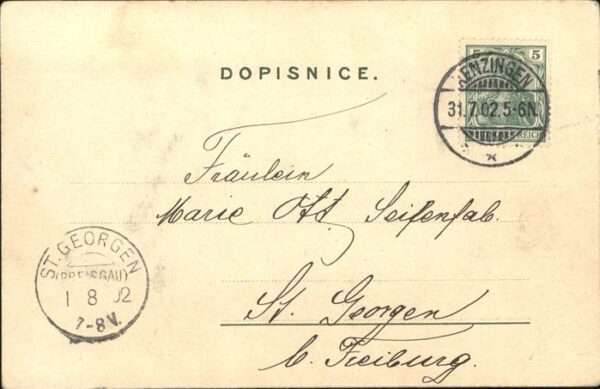 DOPISNICE.
5
REICH
KENZINGEN
31.7.02.5-6N.
Fräulein
Marie Ott Seifenfab.
St. Georgen
b. Freiburg.
ST. GEORGEN
(BREISGAU)
1 8 02
7-8V.